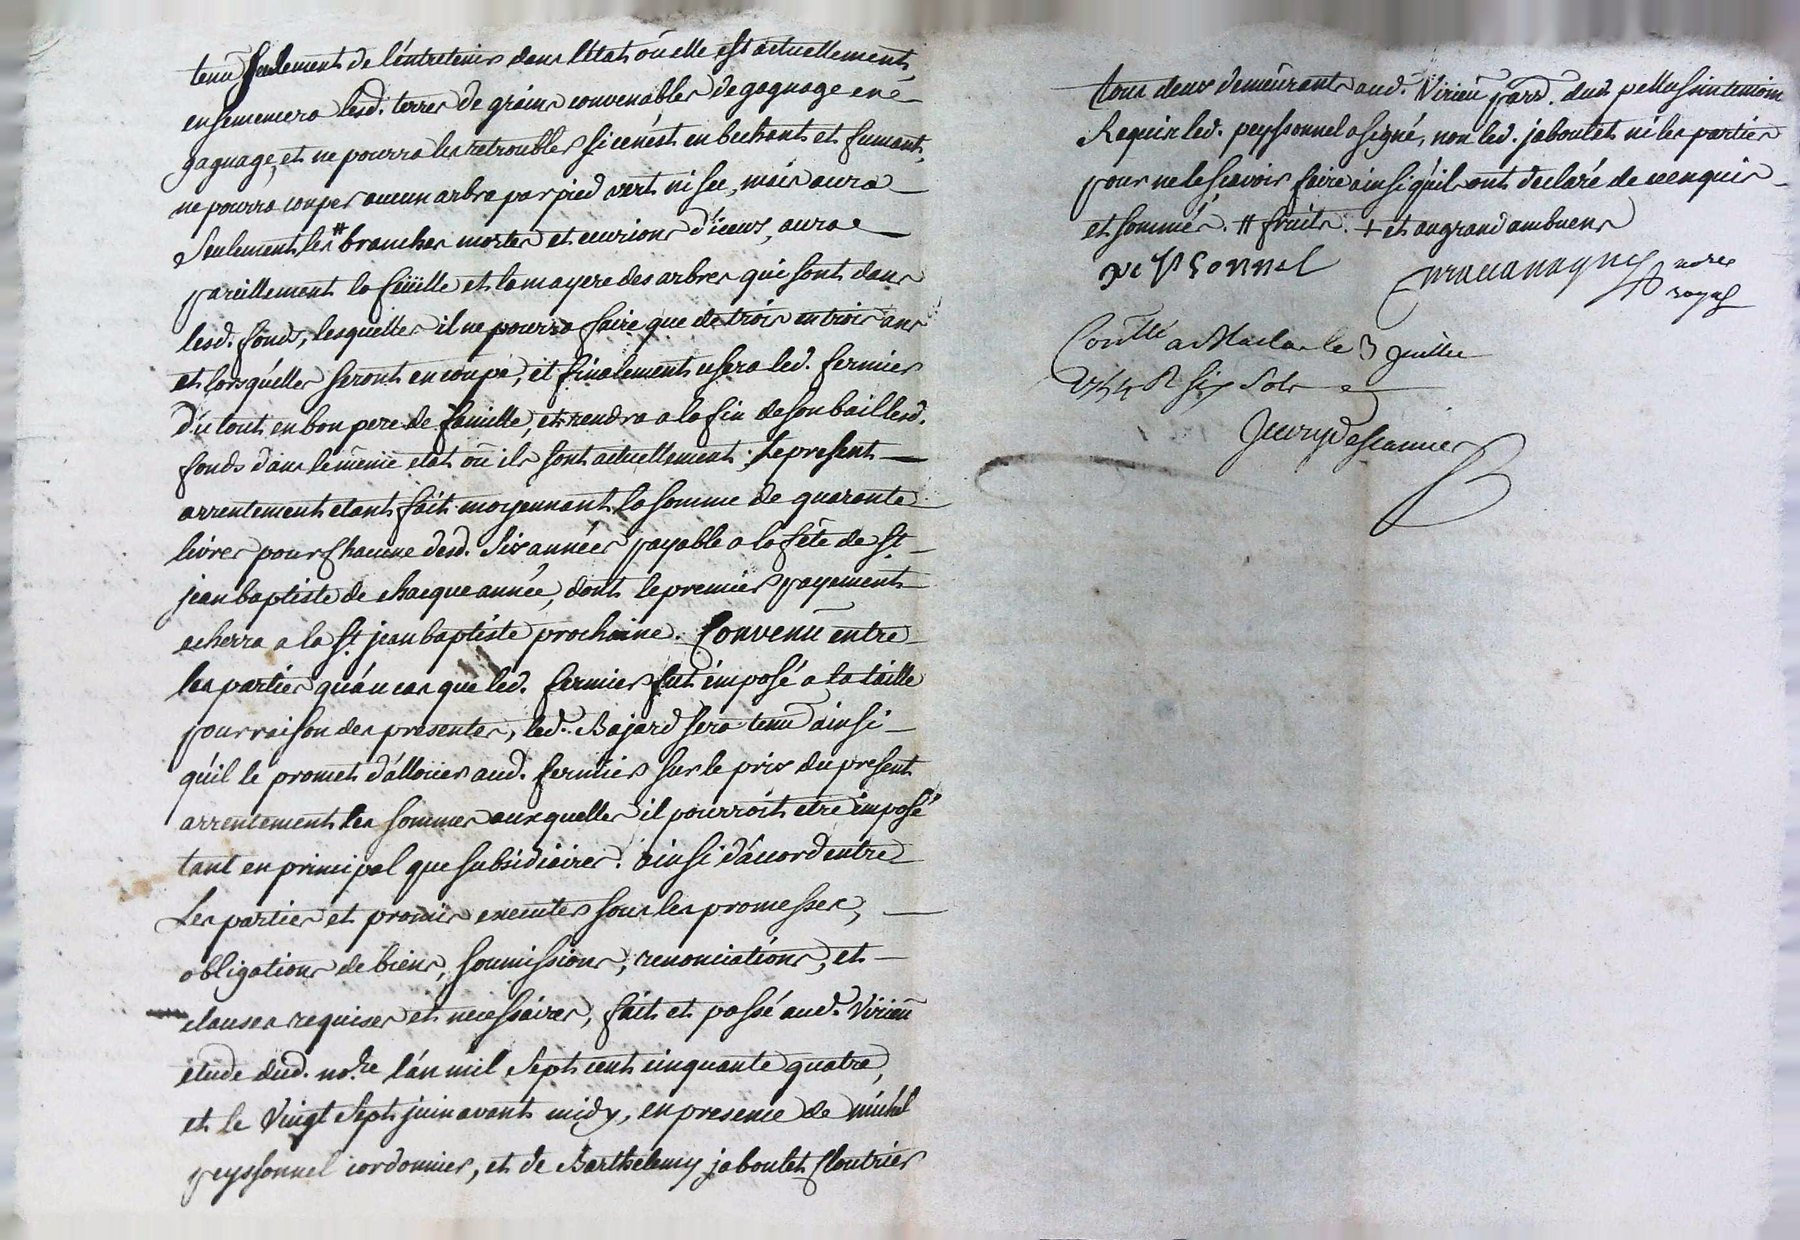 tenu seulement de l'entretenir dans l'état ou elle est actuellement,
ensemencera lesd. terres de grains convenables de gagnage en
gagnage, et ne pourra les retroubler si ce n'est en bechant et fumant,
ne pourra couper aucun arbre par pied vert ni sec, mais aura
seulement les # branches mortes et d'iceux, aura
pareillement la feüille et la mayere des arbres qui sont dans
lesd. fonds, lesquelles il ne pourra faire que de trois en trois ans
et lorsqu'elles seront en coupe, et finalement usera led. fermier
du tout en bon pere de famille, et rendra a la fin de son bail lesd.
fonds dans le même etat ou ils sont actuellement. Le present
arrentement etant fait moyennant la somme de quarante
livres pour chacune desd. six années payable a la fête de St.
jean baptiste de chacque année, dont le premier payement
echerra a la St. jean baptiste prochaine. Convenu entre
les parties qu'au cas que led. fermier fut imposé a la taille
pour raison des presentes, led. Bajard sera tenu ainsi
qu'il le promet d'alloüer aud. fermier sur le prix du present
arrentement les sommes auxquelles il pourroit etre imposé
tant en principal que subsidiaires. ainsi d'accord entre
Les parties et promis executer sous les promesses,
obligations de biens, soumissions, renonciations, et
clauses requises et necessaires, fait et passé aud. Virieu
etude dud. no.re l'an mil sept cent cinquante quatre,
et le Vingt sept juin avant midy, en presence de michel
peyssonnel cordonnier, et de Barthelemy jaboulet cloutrier
tous deux demeurants aud. Virieu parr. dud pellussin temoins
Requis led. peyssonnel a signé, non led. jaboulet ni les parties
pour ne le scavoir faire ainsi qu'il ont declaré de ce enquis
et sommés. # fruits. + et au grand
peyssonnel no.re
royal
Con.lé a Maclas le 3 juillet
1754 R six sols